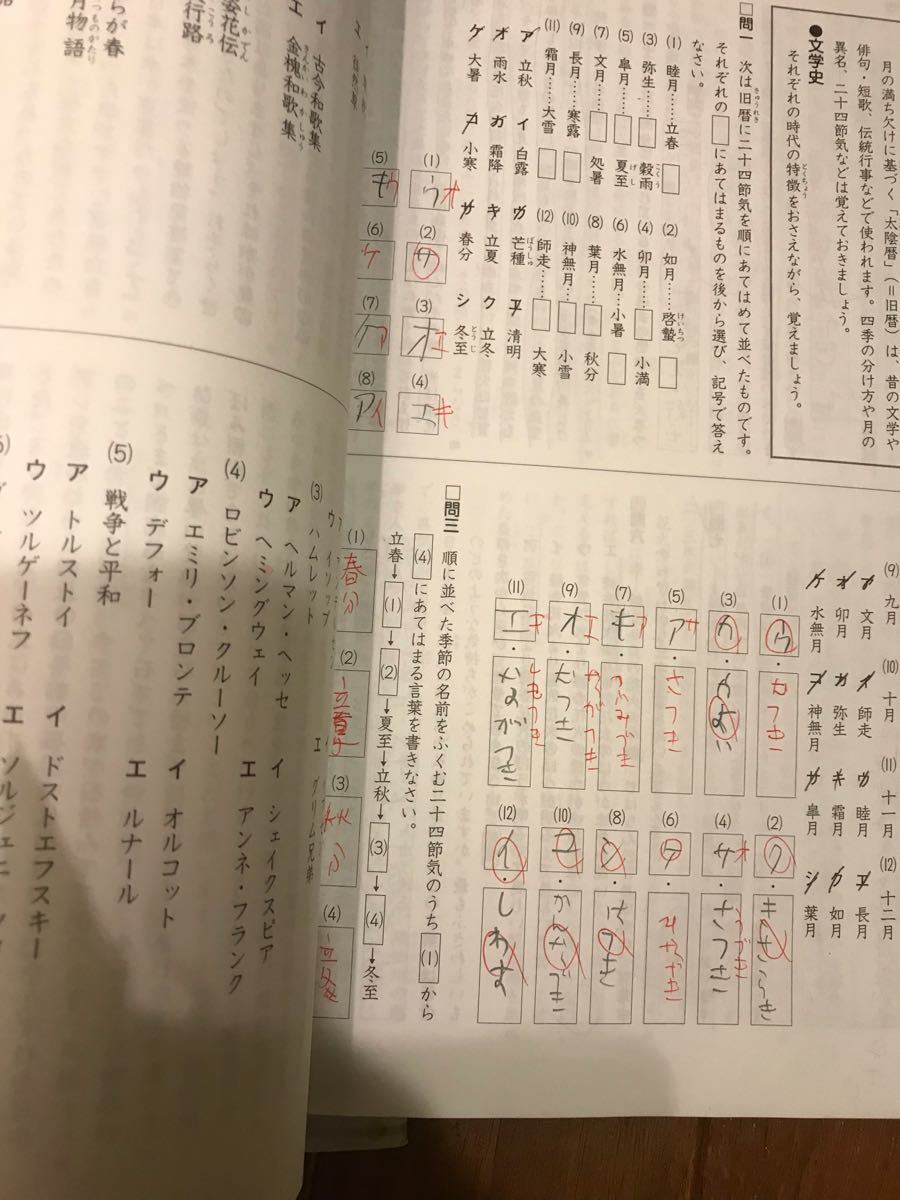 月の満ち欠けに基づく「太陰暦」（＝旧暦）は、昔の文学や
俳句・短歌、伝統行事などで使われます。四季の分け方や月の
異名、二十四節気などは覚えておきましょう。
●文学史
それぞれの時代の特徴をおさえながら、覚えましょう。
□問一　次は旧暦に二十四節気を順にあてはめて並べたものです。
それぞれの□にあてはまるものを後から選び、記号で答え
なさい。
(1) 睦月……立春 □
(2) 如月……啓蟄 □
(3) 弥生……□ 穀雨
(4) 卯月……□ 小満
(5) 皐月……□ 夏至
(6) 水無月…小暑 □
(7) 文月……□ 処暑
(8) 葉月……□ 秋分
(9) 長月……寒露 □
(10) 神無月…□ 小雪
(11) 霜月……大雪 □
(12) 師走……□ 大寒
ア 立秋　イ 白露　ウ 芒種　エ 清明
オ 雨水　カ 霜降　キ 立夏　ク 立冬
ケ 大暑　コ 小寒　サ 春分　シ 冬至
(1) ウ オ
(2) サ
(3) オ エ
(4) エ キ
(5) キ ウ
(6) ケ
(7) ア
(8) ア イ
(9) 九月　(10) 十月　(11) 十一月　(12) 十二月
ア 文月　イ 師走　ウ 睦月　エ 長月
オ 卯月　カ 弥生　キ 霜月　ク 如月
ケ 水無月　コ 神無月　サ 皐月　シ 葉月
(1) ウ・むつき
(2) ク・きさらぎ
(3) カ・やよい
(4) サ オ・さつき うづき
(5) ア サ・さつき
(6) ケ・みなづき
(7) キ ア・ふみづき
(8) シ・はづき
(9) オ エ・むつき ながつき
(10) コ・かんなづき
(11) エ キ・ながつき しもつき
(12) イ・しわす
□問三　順に並べた季節の名前をふくむ二十四節気のうち(1)から
(4)にあてはまる言葉を書きなさい。
立春→(1)→(2)→夏至→立秋→(3)→(4)→冬至
(1) 春分
(2) 立夏
(3) 秋分
(4) 立冬
イ 古今和歌集
エ 金槐和歌集
行路
らが春
月物語
ウ イソップ
エ グリム兄弟
(3) ハムレット
ア ヘルマン・ヘッセ
イ シェイクスピア
ウ ヘミングウェイ
エ アンネ・フランク
(4) ロビンソン・クルーソー
ア エミリ・ブロンテ
イ オルコット
ウ デフォー
エ ルナール
(5) 戦争と平和
ア トルストイ
イ ドストエフスキー
ウ ツルゲーネフ